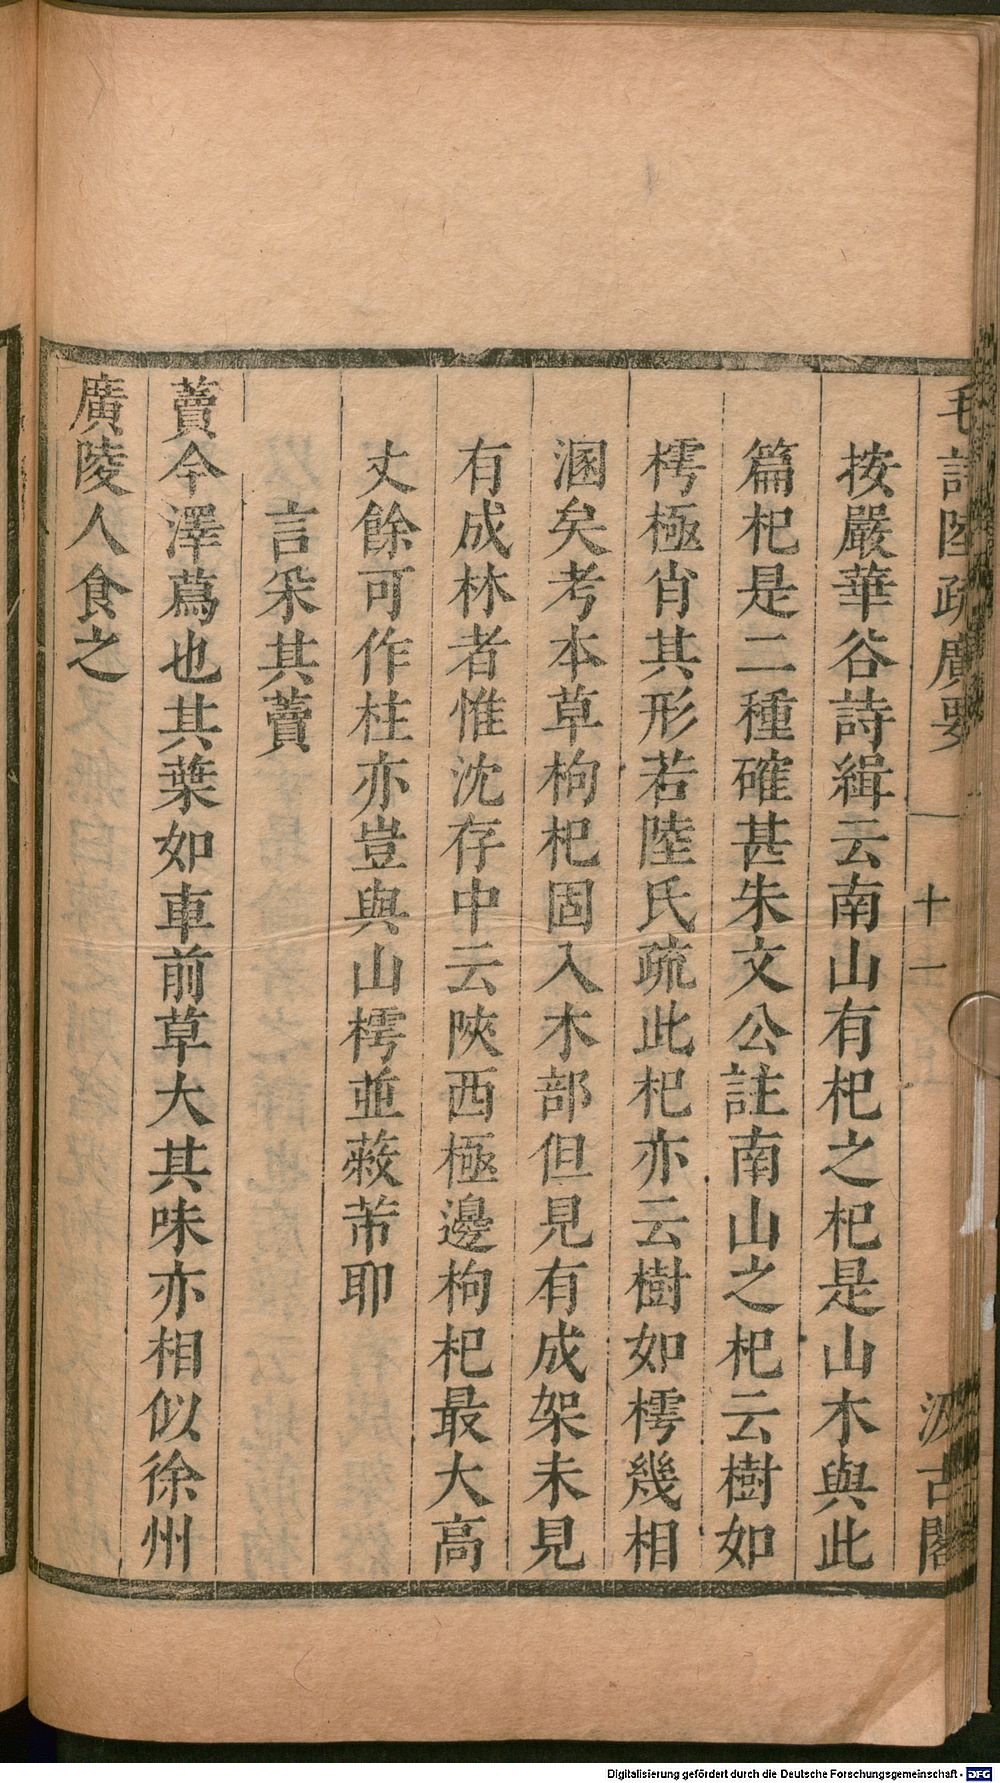 毛詩陸疏廣要　十一　汲古閣
按嚴華谷詩緝云南山有杞之杞是山木與此
篇杞是二種確甚朱文公註南山之杞云樹如
樗極肖其形若陸氏疏此杞亦云樹如樗幾相
溷矣考本草枸杞固入木部但見有成架未見
有成林者惟沈存中云陜西極邊枸杞最大高
丈餘可作柱亦豈與山樗並蔽芾耶
言采其藚
藚今澤蔿也其葉如車前草大其味亦相似徐州
廣陵人食之
Digitalisierung gefördert durch die Deutsche Forschungsgemeinschaft - DFG